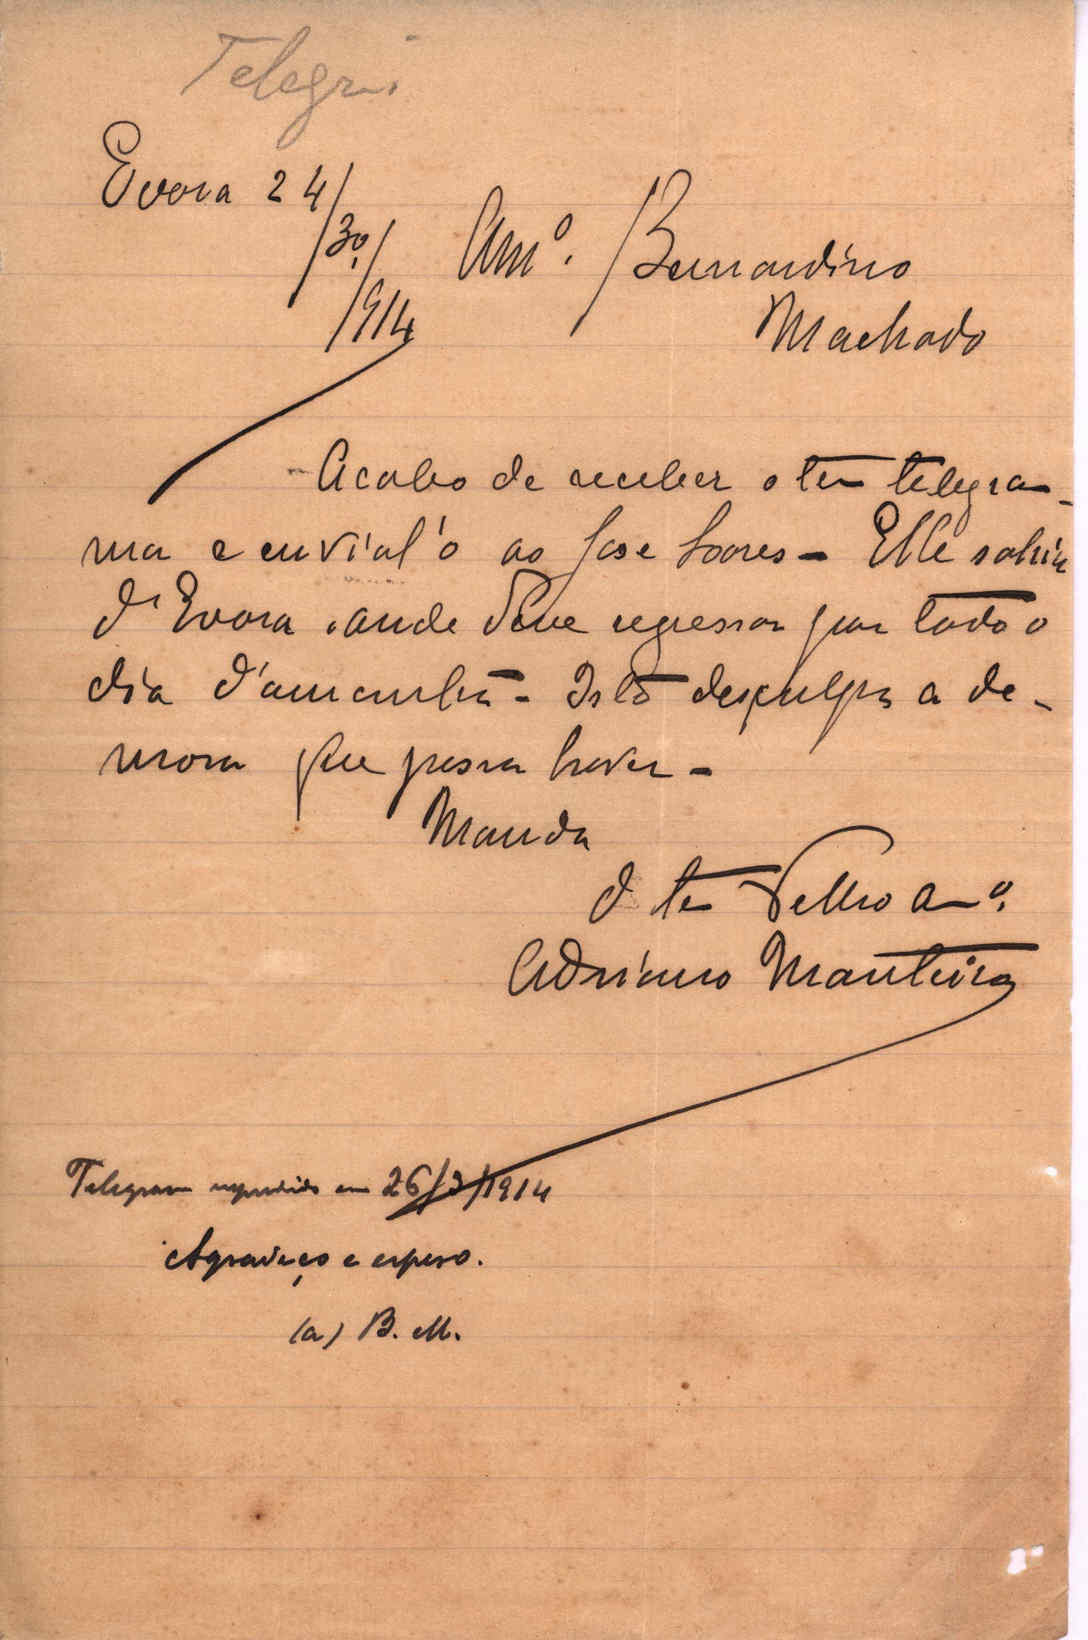 Telegr.
Evora 24/3º/914
Amº. Bernardino
Machado
Acabo de receber o teu telegra-
ma e envial'o ao Jose Soares - Elle sahiu
d'Evora, onde deve regressar por todo o
dia d'amenhã - Isto desculpa a de-
mora que possa haver -
Manda
O teu Velho amº.
Adriano Monteiro
Telegrama expedido em 26/3/1914
Agradeço e espero.
(a) B. M.